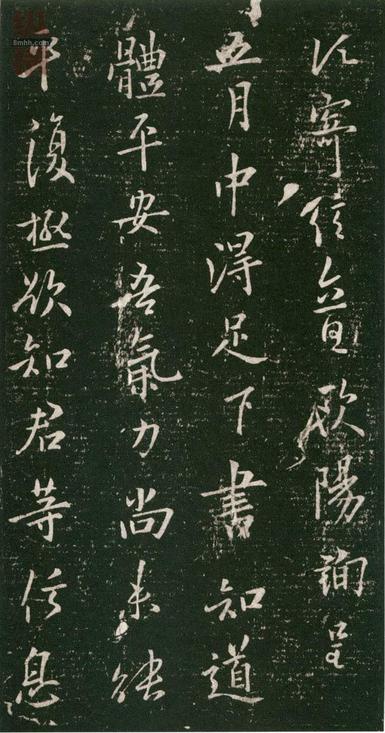 但寄信宜歐陽詢呈
五月中得足下書知道
體平安吾氣力尚未能
平復極欲知君等信息
8mhh.com